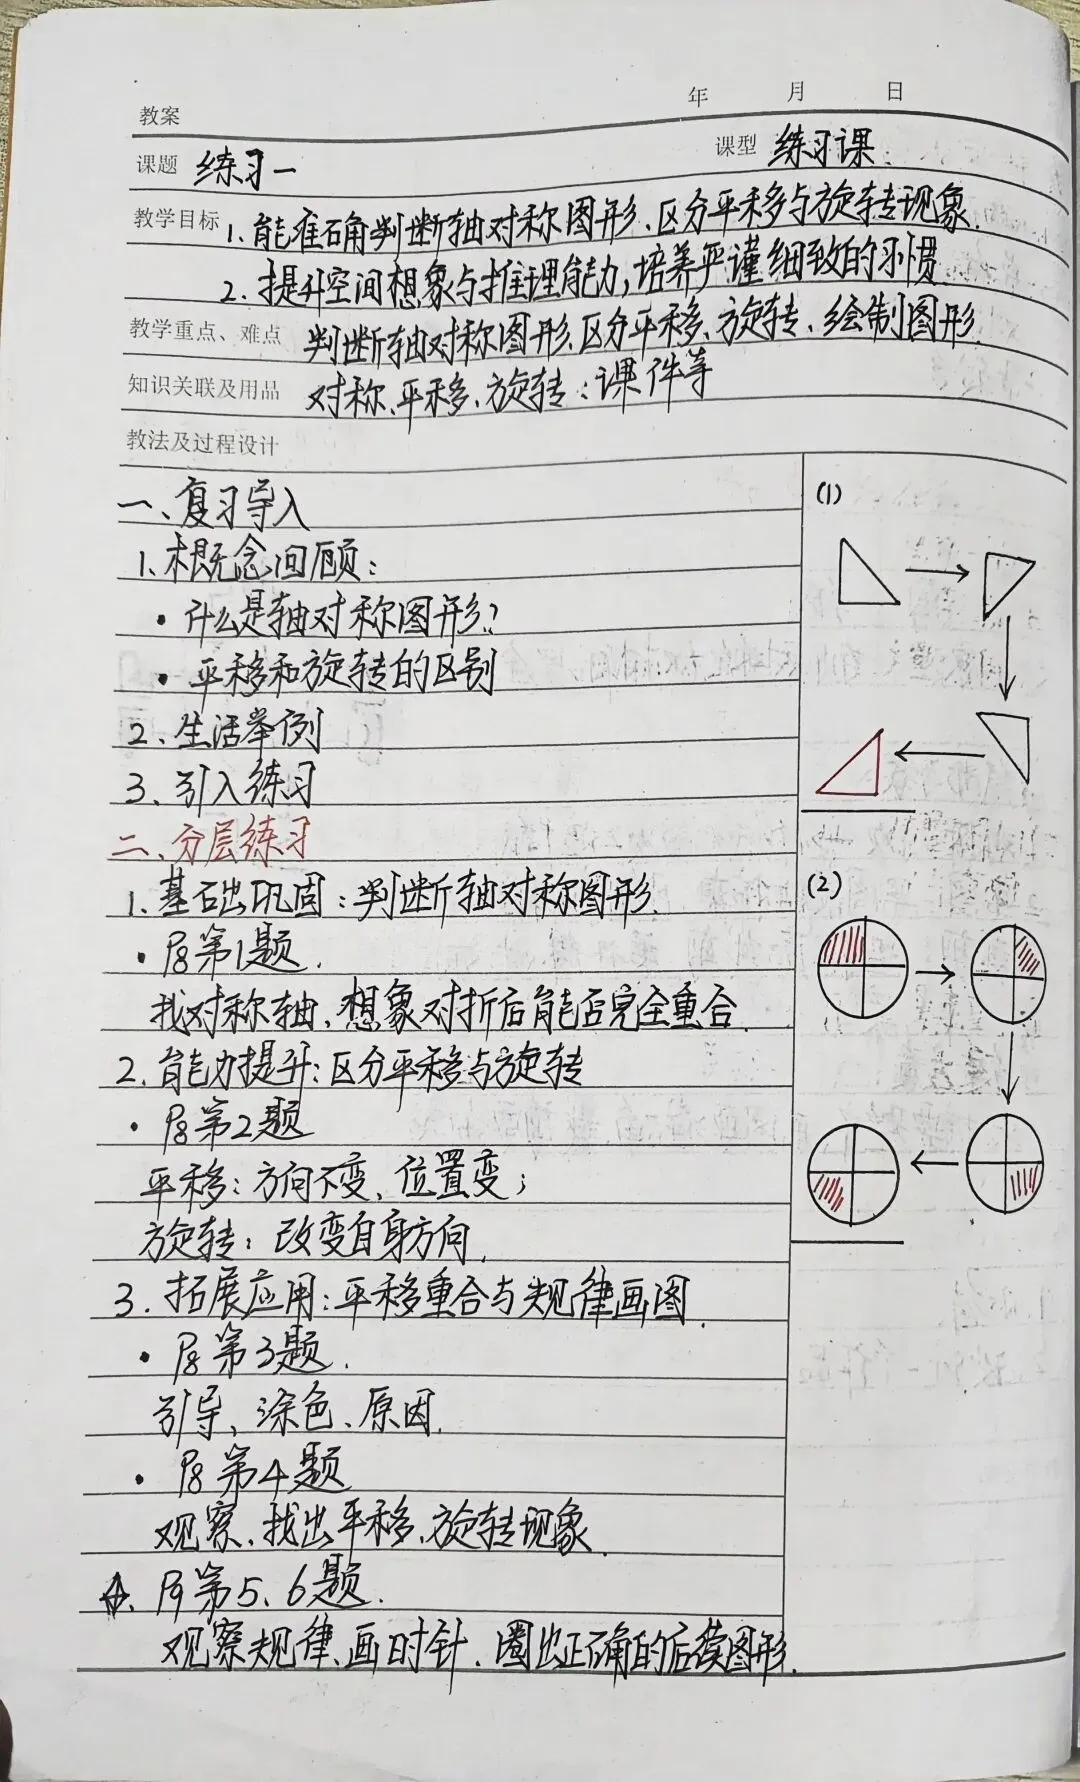 年 月 日
教案
课题 练习一 课型 练习课.
教学目标 1.能准确判断轴对称图形、区分平移与旋转现象.
2.提升空间想象与推理能力,培养严谨细致的习惯.
教学重点、难点 判断轴对称图形、区分平移、旋转、绘制图形.
知识关联及用品 对称、平移、旋转;课件等
教法及过程设计
一、复习导入
1.概念回顾:
·什么是轴对称图形?
·平移和旋转的区别
2.生活举例
3.引入练习
二、分层练习
1.基础巩固:判断轴对称图形.
·P8第1题.
找对称轴,想象对折后能否完全重合.
2.能力提升:区分平移与旋转
·P8第2题
平移:方向不变、位置变;
旋转:改变自身方向.
3.拓展应用:平移重合与规律画图.
·P8第3题.
引导、涂色、原因.
·P8第4题
观察、找出平移、旋转现象.
4.P9第5、6题.
观察规律、画时针、圈出正确的后续图形.
(1)
(2)